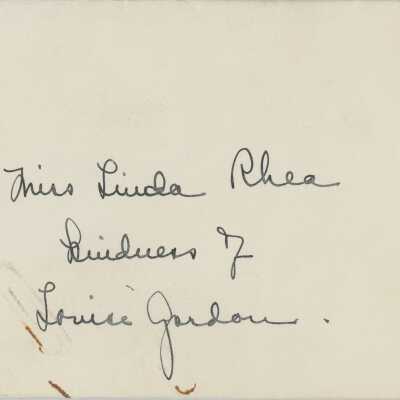 Miss Linda Rhea
Kindness of
Louise Gordon.